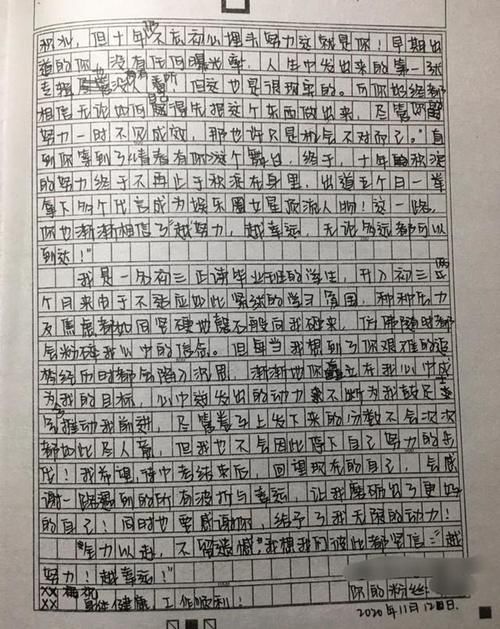 积淀，但十年不忘初心埋头努力这就是你！早期出
道的你，没有任何曝光率，人生中发出来的第一张
专辑尽管没人看，但这也是很现实的。可你始终都
相信无论如何 得先把这个东西做出来，尽管你
努力一时不见成效，那也许只是机会不对而已。"直
到你等到了《青春有你》这个舞台，终于，十年的积淀
的努力终于不再止于积淀在身里，出道五个月一举
拿下多个代言成为娱乐圈女星顶流人物！这一路，
你也渐渐相信了"越努力，越幸运，无论多远都可以
到达！"
我是一名初三正读毕业班的学生，升入初三两
个月来由于不适应如此紧绷的学习氛围，种种压力
及焦虑都如同坚硬地 般向我砸来，仿佛随时都
会粉碎我心中的信念。但每当我想到了你艰难的追
梦经历时都会陷入沉思，渐渐地你矗立在我心中成
为我的目标，心中散发出的动力来不断为我鼓足勇
气推动我前进，尽管卷子上发下来的分数不会次次
都如此尽人意，但我也不会因此停下自己努力的步
伐！我希望，待中考结束后，回望现在的自己，会感
谢一路遇到的所有波折与幸运，让我磨砺出了更好
的自己！同时也要感谢你，给予了我无限的动力！
"全力以赴，不留遗憾"我想我们彼此都坚信："越
努力！越幸运！"
XX 祝
XX 身体健康，工作顺利！ 你的粉丝：
2020年11月12日